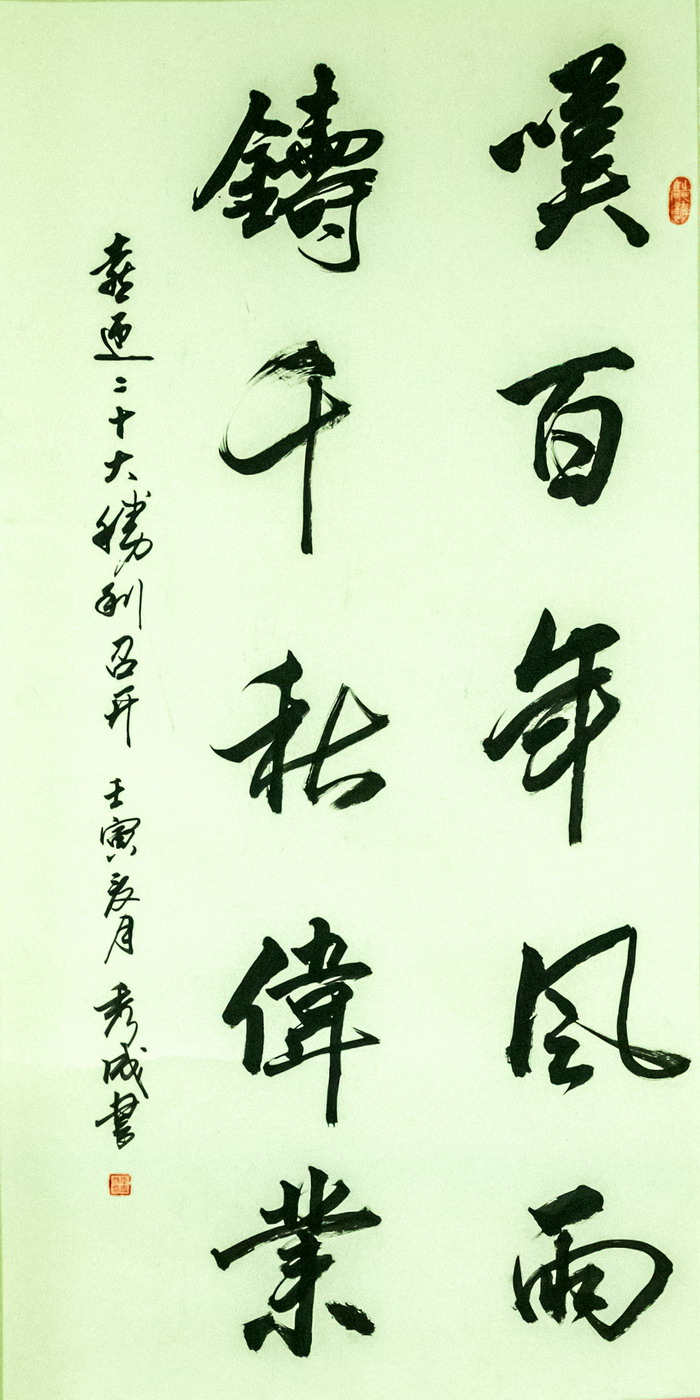 嘆百年風雨
鑄千秋偉業
喜迎二十大勝利召开 壬寅夏月 秀成書